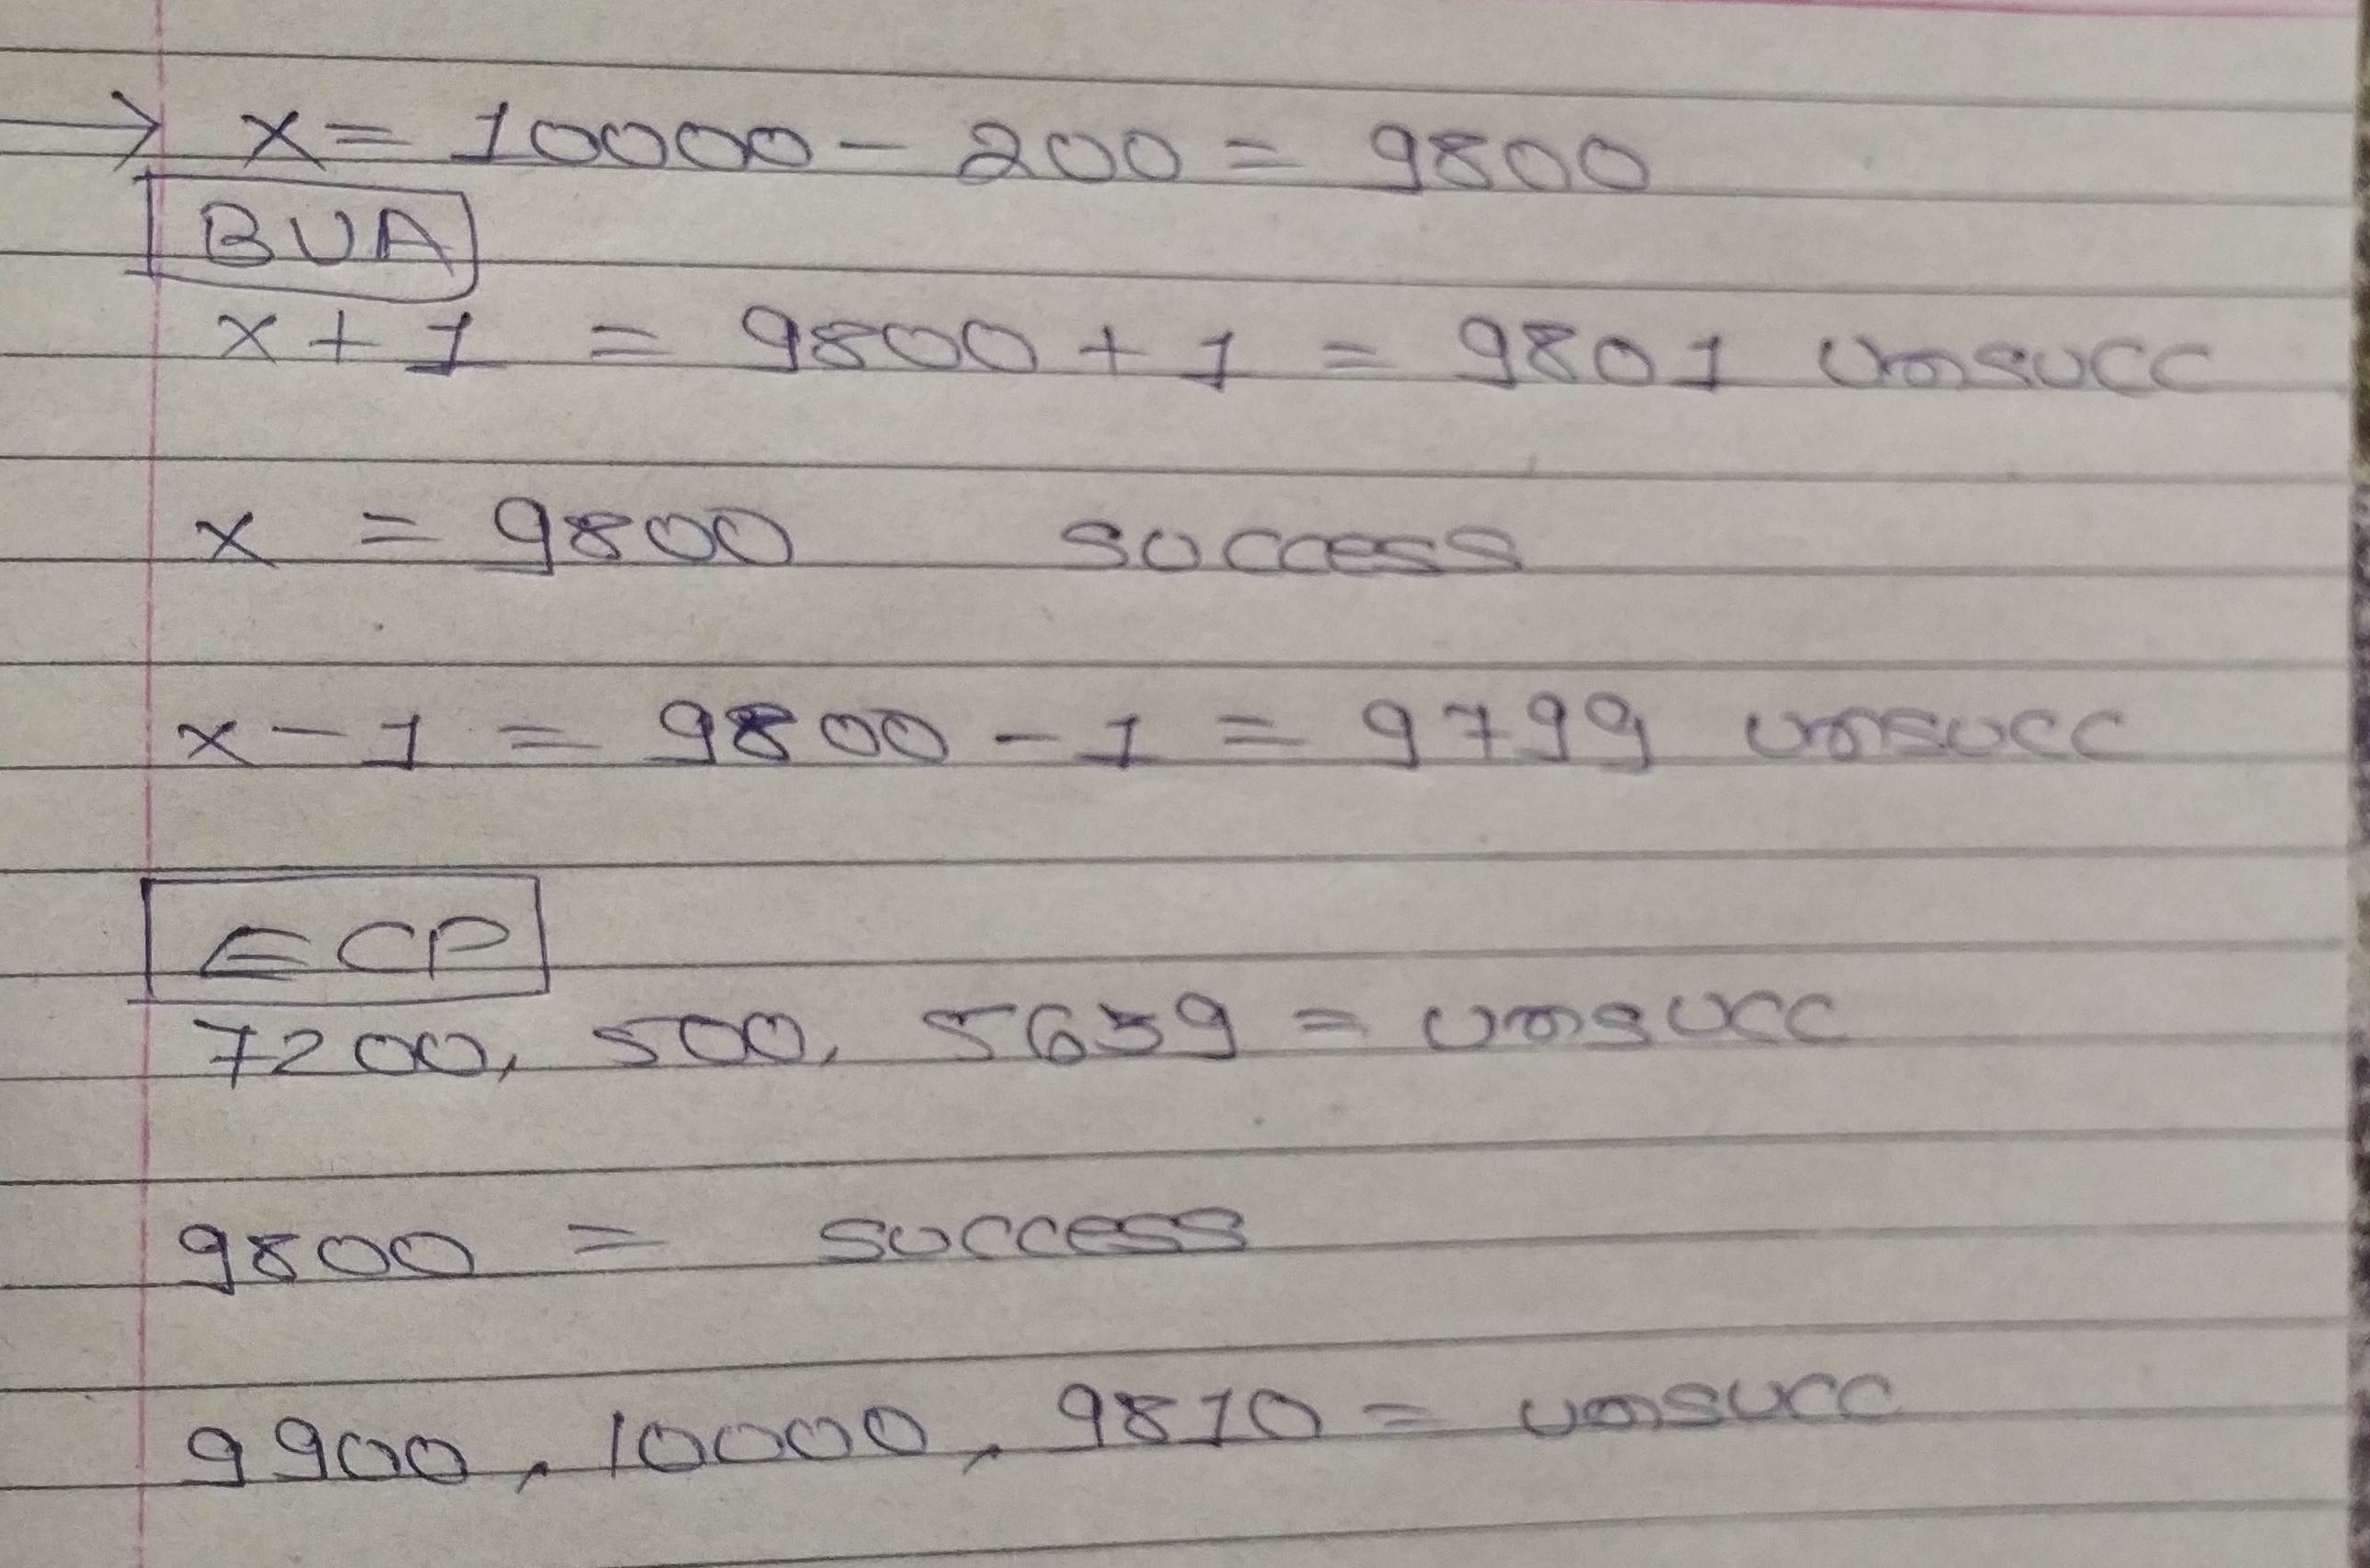 ⇒ x = 10000 - 200 = 9800
BVA
x + 1 = 9800 + 1 = 9801 unsucc
x = 9800 success
x - 1 = 9800 - 1 = 9799 unsucc
ECP
7200, 500, 5639 = unsucc
9800 = success
9900, 10000, 9810 = unsucc